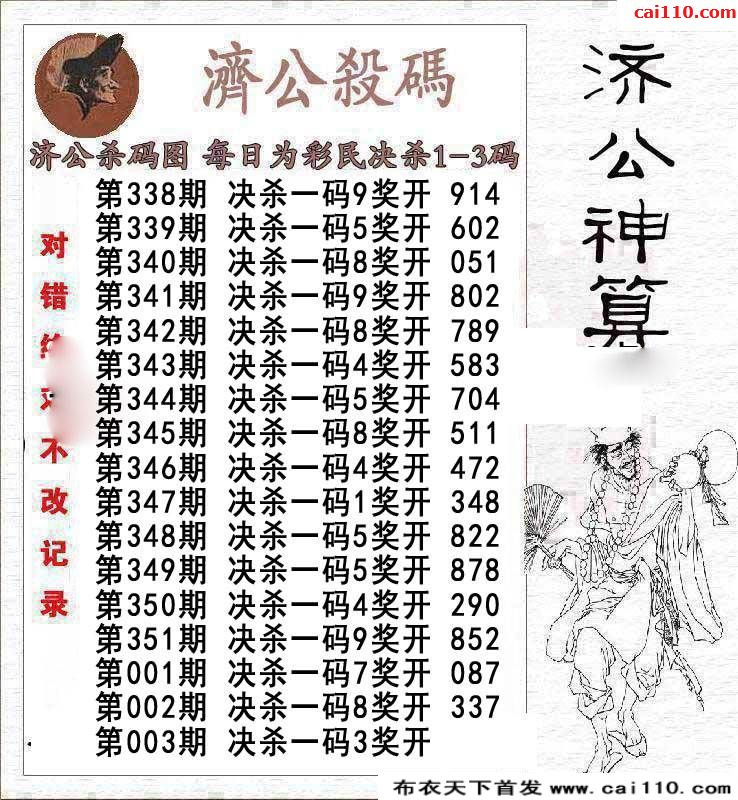 cai110.com
濟公殺碼
济公杀码图 每日为彩民决杀1-3码
第338期 决杀一码9奖开 914
第339期 决杀一码5奖开 602
第340期 决杀一码8奖开 051
第341期 决杀一码9奖开 802
第342期 决杀一码8奖开 789
第343期 决杀一码4奖开 583
第344期 决杀一码5奖开 704
第345期 决杀一码8奖开 511
第346期 决杀一码4奖开 472
第347期 决杀一码1奖开 348
第348期 决杀一码5奖开 822
第349期 决杀一码5奖开 878
第350期 决杀一码4奖开 290
第351期 决杀一码9奖开 852
第001期 决杀一码7奖开 087
第002期 决杀一码8奖开 337
第003期 决杀一码3奖开
对错不改记录
济公神算
布衣天下首发 www.cai110.com